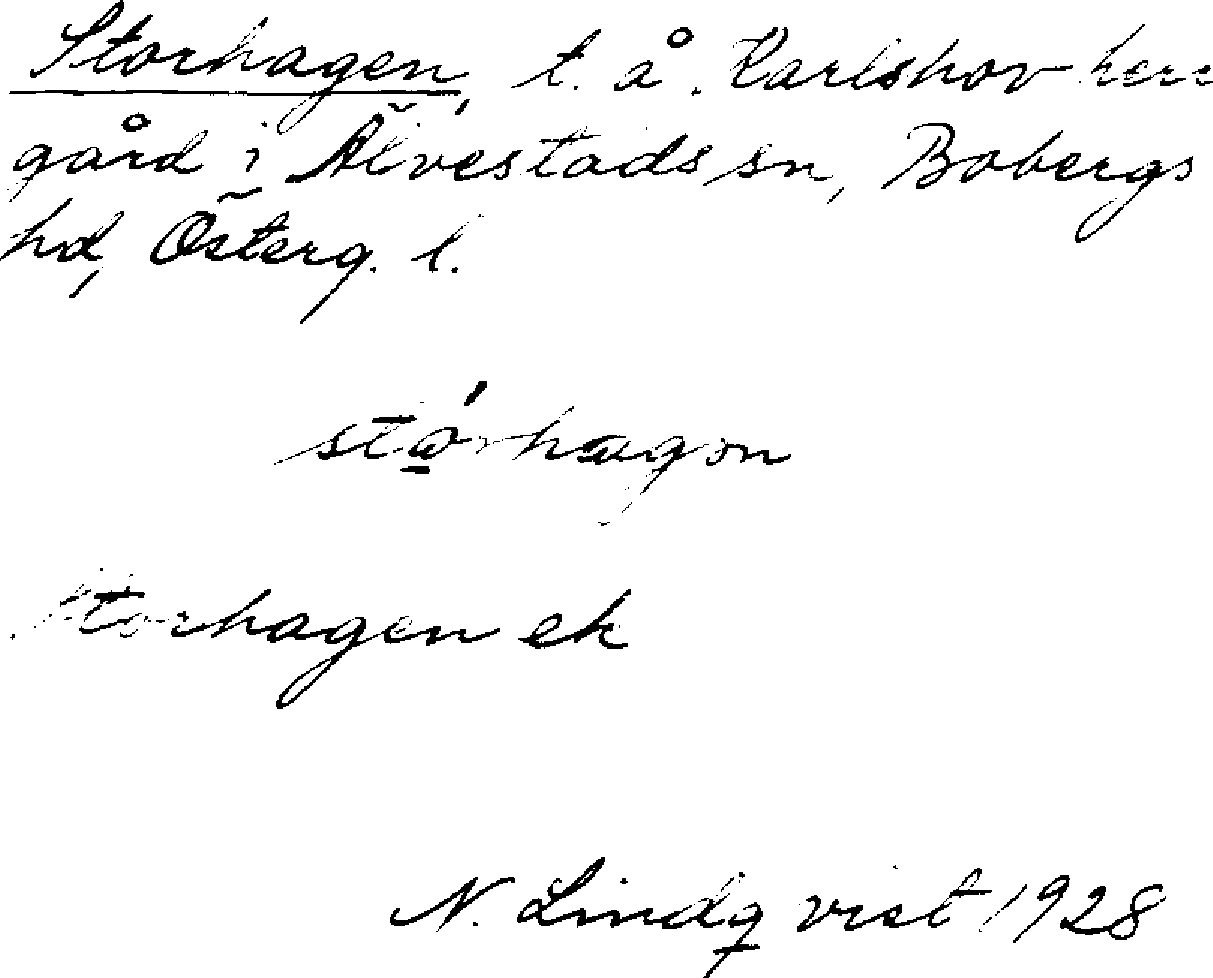 Storhagen, t. å. Karlshov herr
gård i Älvestads sn, Bobergs
hd, Österg. l.
stó̲rhagən
Storhagen ek
N. Lindqvist 1928